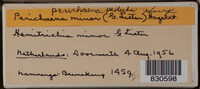 Perichaena
Perichaena minor (G. Lister) Hagelst.
Hemitrichia minor G. Lister
Netherlands: Doorwerth 4 Aug. 1956
Nannenga-Bremekamp 1459
830598